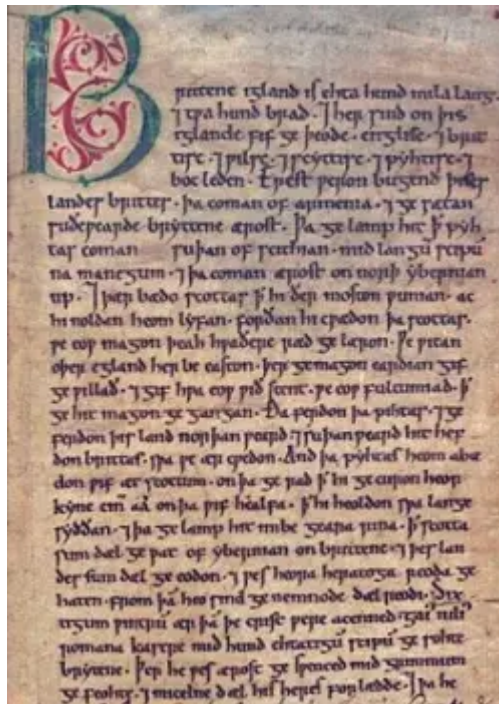 Brittene igland is ehta hund mila lang.
⁊ tƿa hund brad. ⁊ her sind on þis
iglande fif ge þeode. englisc. ⁊ brit
tisc. ⁊ ƿilsc. ⁊ scyttisc. ⁊ pyhtisc. ⁊
boc leden. Erest ƿeron bugend þises
landes brittes. þa coman of armenia. ⁊ ge sætan
suðeƿearde bryttene ærost. Þa ge lamp hit ꝥ pyh
tas coman suþan of scithian. mid langū scipū
na manegum. ⁊ þa coman ærost on norþ ybernian
up. ⁊ þær bædo scottas ꝥ hi ðer moston ƿunian. ac
hi noldan heom lyfan. forðan hi cƿædon þa scottas.
ƿe eoƿ magon þeah hƿaðere ræd ge læron. Ƿe ƿitan
oþer egland her be easton. þer ge magon eardian gif
ge ƿillað. ⁊ gif hƿa eoƿ ƿið stent. ƿe eoƿ fultumiað. ꝥ
ge hit magon ge gangan. Ða ferdon þa pihtas. ⁊ ge
ferdon þis land norþan ƿeard. ⁊ suþan ƿeard hit hef
don brittas. sƿa ƿe ær cƿedon. And þa pyhtas heom abæ
don ƿif æt scottum. on þa ge rad ꝥ hi ge curon heora
kyne cinn aa on þa ƿif healfa. ꝥ hi heoldon sƿa lange
syððan. ⁊ þa ge lamp hit imbe geara rina. ꝥ scotta
sum dæl ge ƿat of ybernian on brittene. ⁊ þes lan
des sum dæl ge eodon. ⁊ ƿes heora heratoga reoda ge
haten. from þā heo sind ge nemnode dæl reodi. Six
tigum ƿintrū ær þā þe crist ƿere acenned. gaius iulius
romana kasere mid hund ehtatigū scipū ge sohte
brytene. Þer he ƿes ærost ge sƿenced mid grimmum
ge feohte. ⁊ micelne dæl his heres forlædde. ⁊ þa he